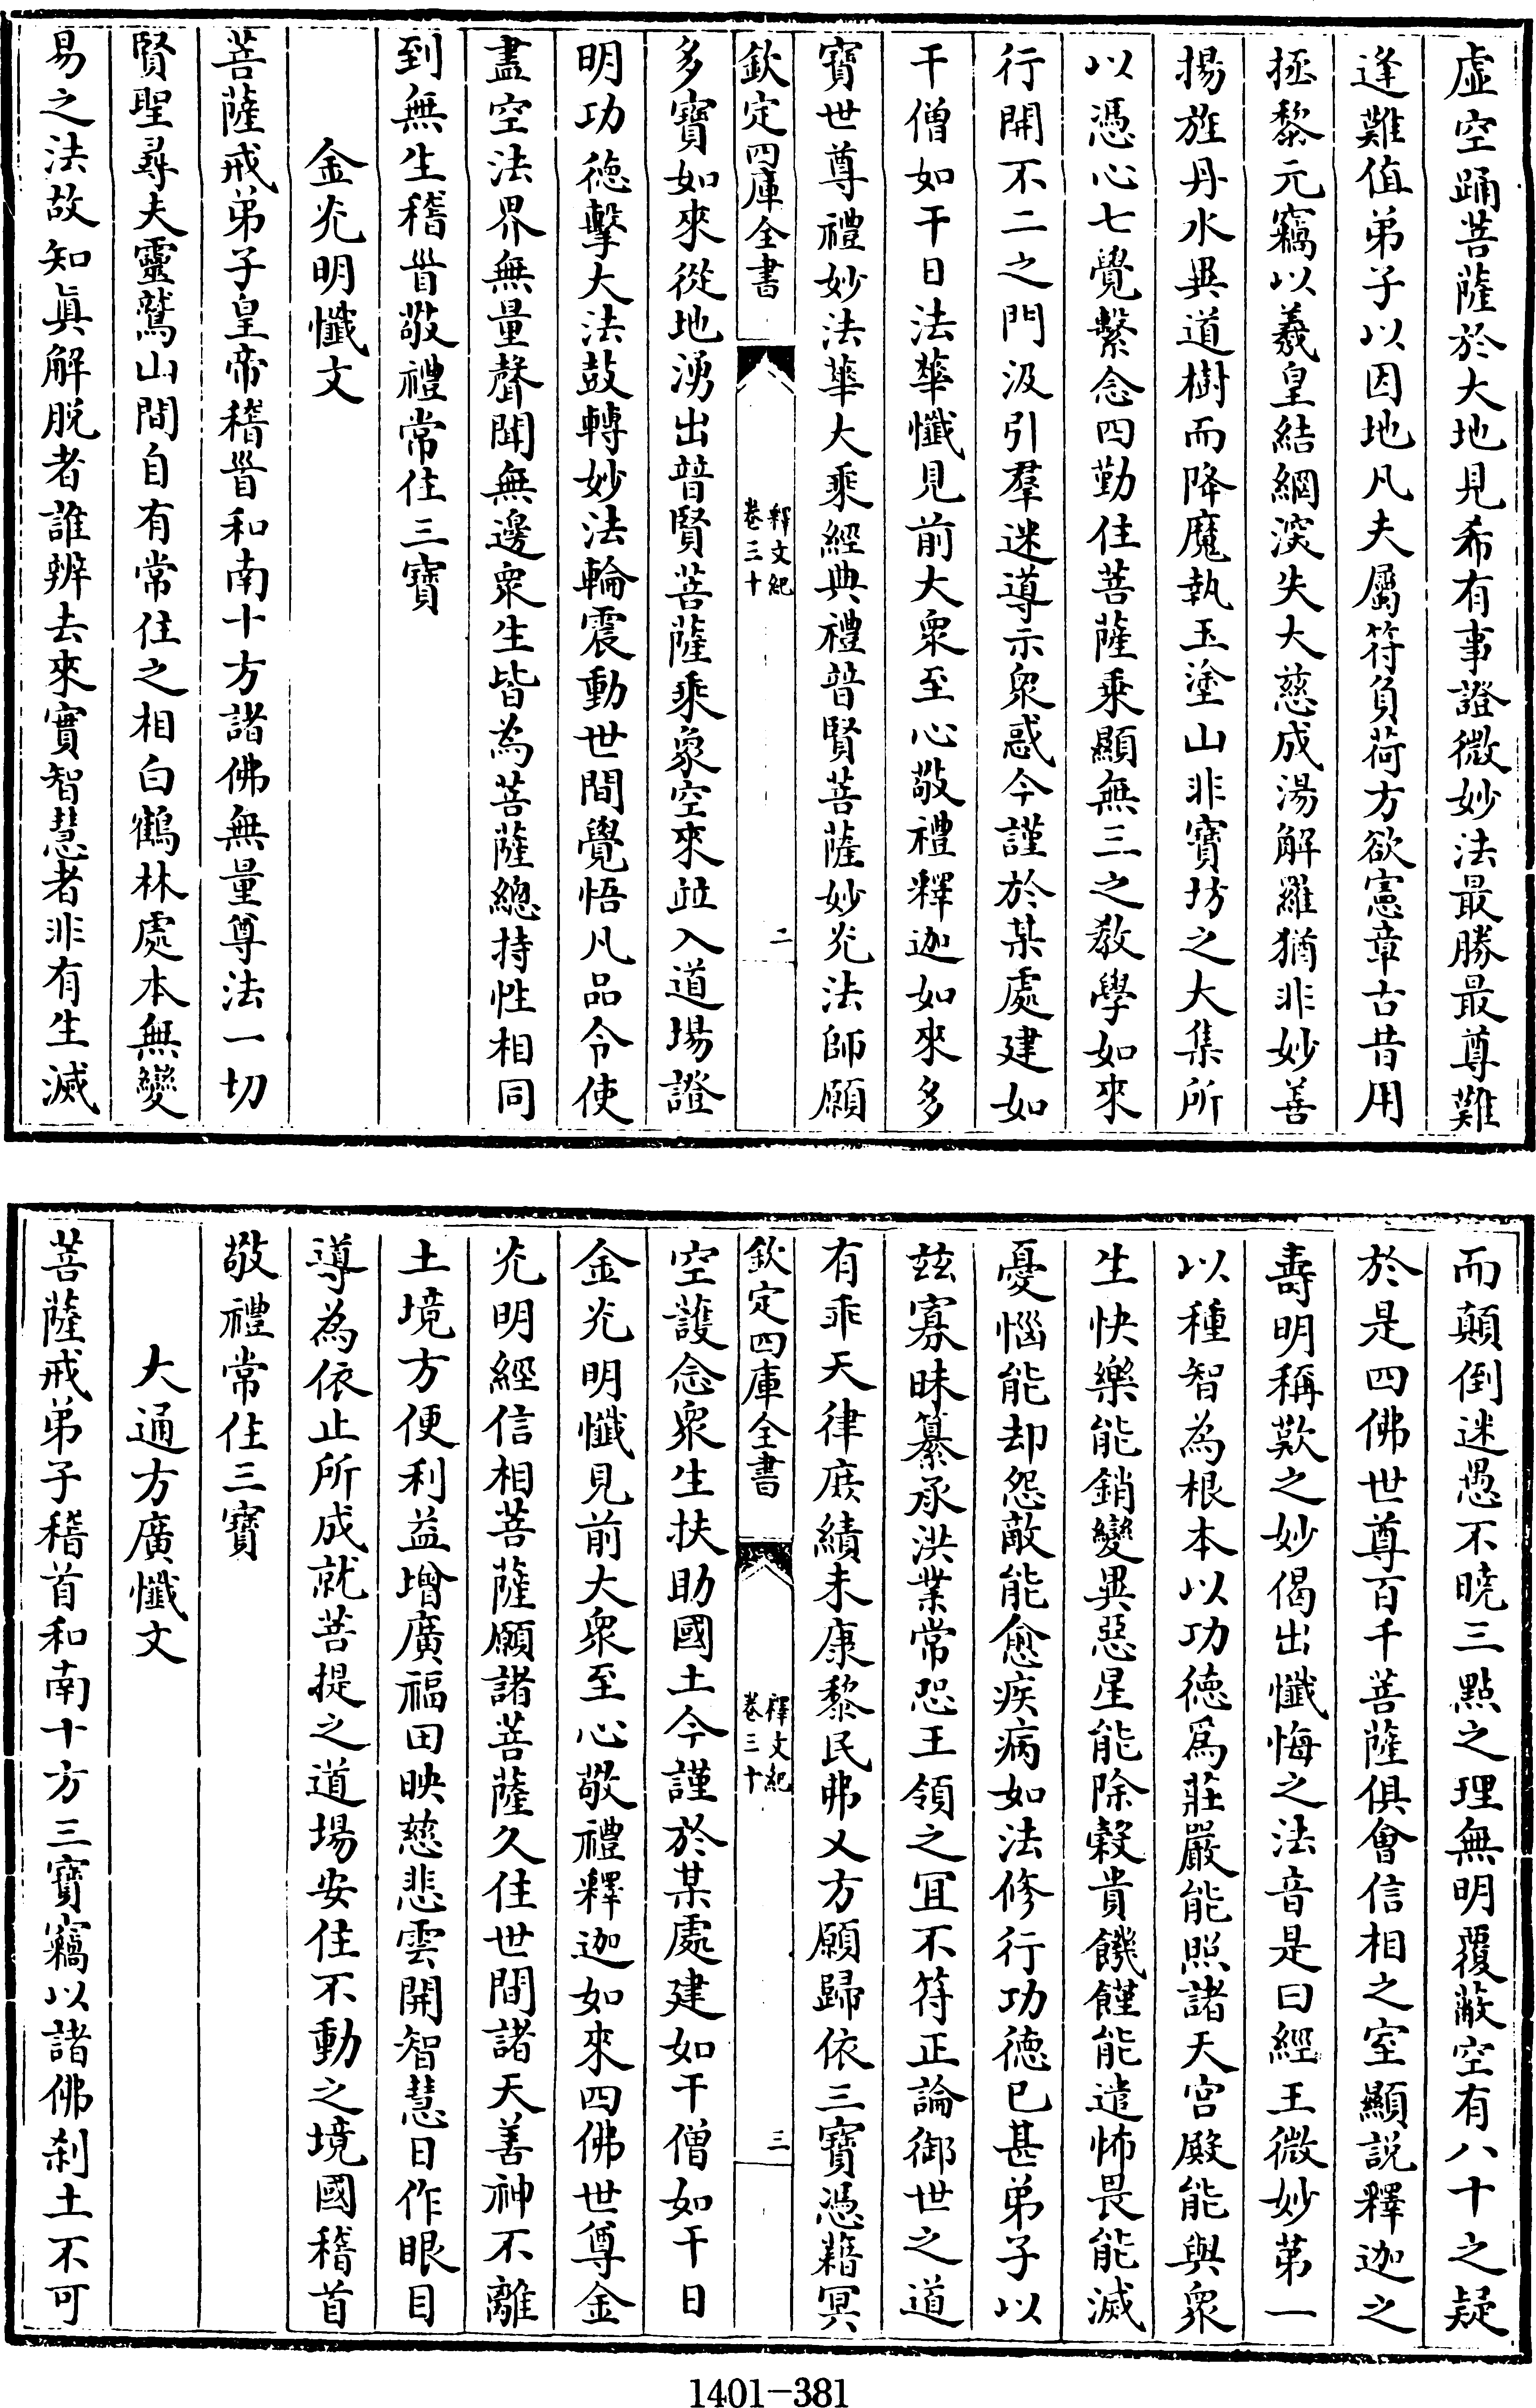 虛空踊菩薩於大地見希有事證微妙法最勝最尊難
逢難值弟子以因地凡夫屬符負荷方欲憲章古昔用
拯黎元竊以羲皇結網深失大慈成湯解羅猶非妙善
揚旌丹水異道樹而降魔執玉塗山非寶坊之大集所
以憑心七覺繫念四勤住菩薩乘顯無三之教學如來
行開不二之門汲引羣迷導示衆惑今謹於某處建如
干僧如干日法華懺見前大衆至心敬禮釋迦如來多
寶世尊禮妙法華大乘經典禮普賢菩薩妙光法師願
欽定四庫全書 釋文紀卷三十 二
多寶如來從地湧出普賢菩薩乘象空來並入道場證
明功德擊大法鼓轉妙法輪震動世間覺悟凡品令使
盡空法界無量聲聞無邊衆生皆為菩薩總持性相同
到無生稽首敬禮常住三寶
金光明懺文
菩薩戒弟子皇帝稽首和南十方諸佛無量尊法一切
賢聖尋夫靈鷲山間自有常住之相白鶴林處本無變
易之法故知眞解脱者誰辨去來實智慧者非有生滅
而顛倒迷愚不曉三點之理無明覆蔽空有八十之疑
於是四佛世尊百千菩薩俱會信相之室顯説釋迦之
壽明稱歎之妙偈出懺悔之法音是曰經王微妙第一
以種智為根本以功德爲莊嚴能照諸天宮殿能與衆
生快樂能銷變異惡星能除穀貴饑饉能遣怖畏能滅
憂惱能却怨敵能愈疾病如法修行功德已甚弟子以
兹寡昧纂承洪業常恐王領之宜不符正論御世之道
有乖天律庶績未康黎民弗乂方願歸依三寶憑藉冥
欽定四庫全書 釋文紀卷三十 三
空護念衆生扶助國土今謹於某處建如干僧如干日
金光明懺見前大衆至心敬禮釋迦如來四佛世尊金
光明經信相菩薩願諸菩薩久住世間諸天善神不離
土境方便利益增廣福田映慈悲雲開智慧日作眼目
導為依止所成就菩提之道場安住不動之境國稽首
敬禮常住三寶
大通方廣懺文
菩薩戒弟子稽首和南十方三寶竊以諸佛刹土不可
1401-381